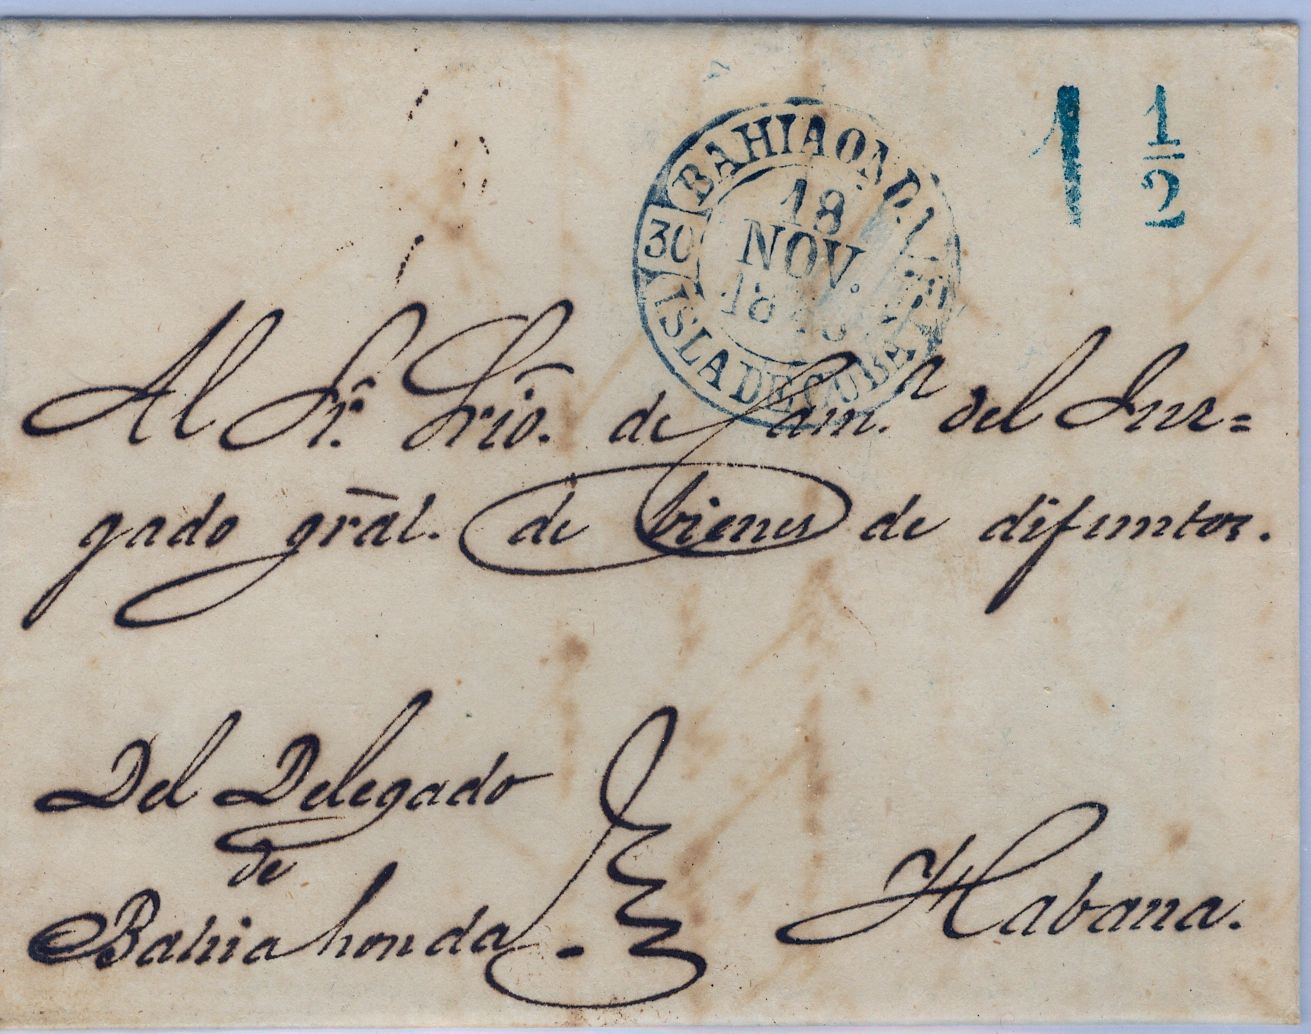 1 1/2
BAHIAONDA
30
18
NOV.
ISLA DE CUBA
Al Sr. Srio. de Cam.a del Juz=
gado grãl. de bienes de difuntos.
Del Delgado
de
Bahia honda
Habana.